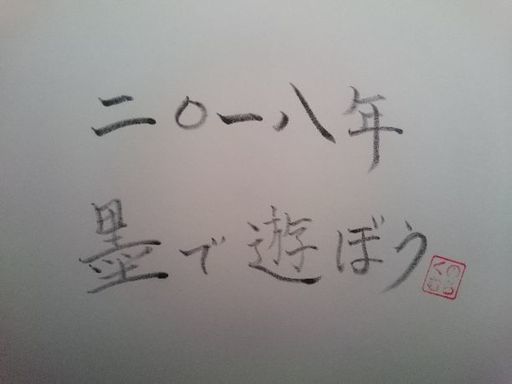 二〇一八年
墨で遊ぼう